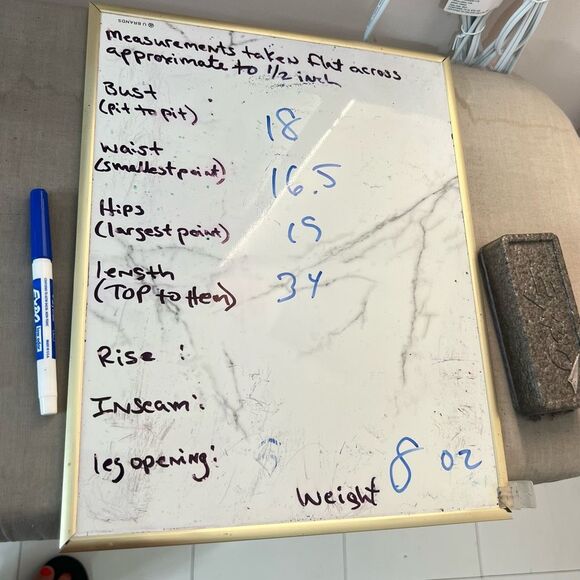 U BRANDS
Measurements taken flat across
approximate to 1/2 inch
Bust
(pit to pit) 18
Waist
(smallest point) 16.5
Hips
(largest point) 19
length
(TOP to Hem) 34
Rise :
INseam:
leg opening:
Weight 8 oz
EXPO